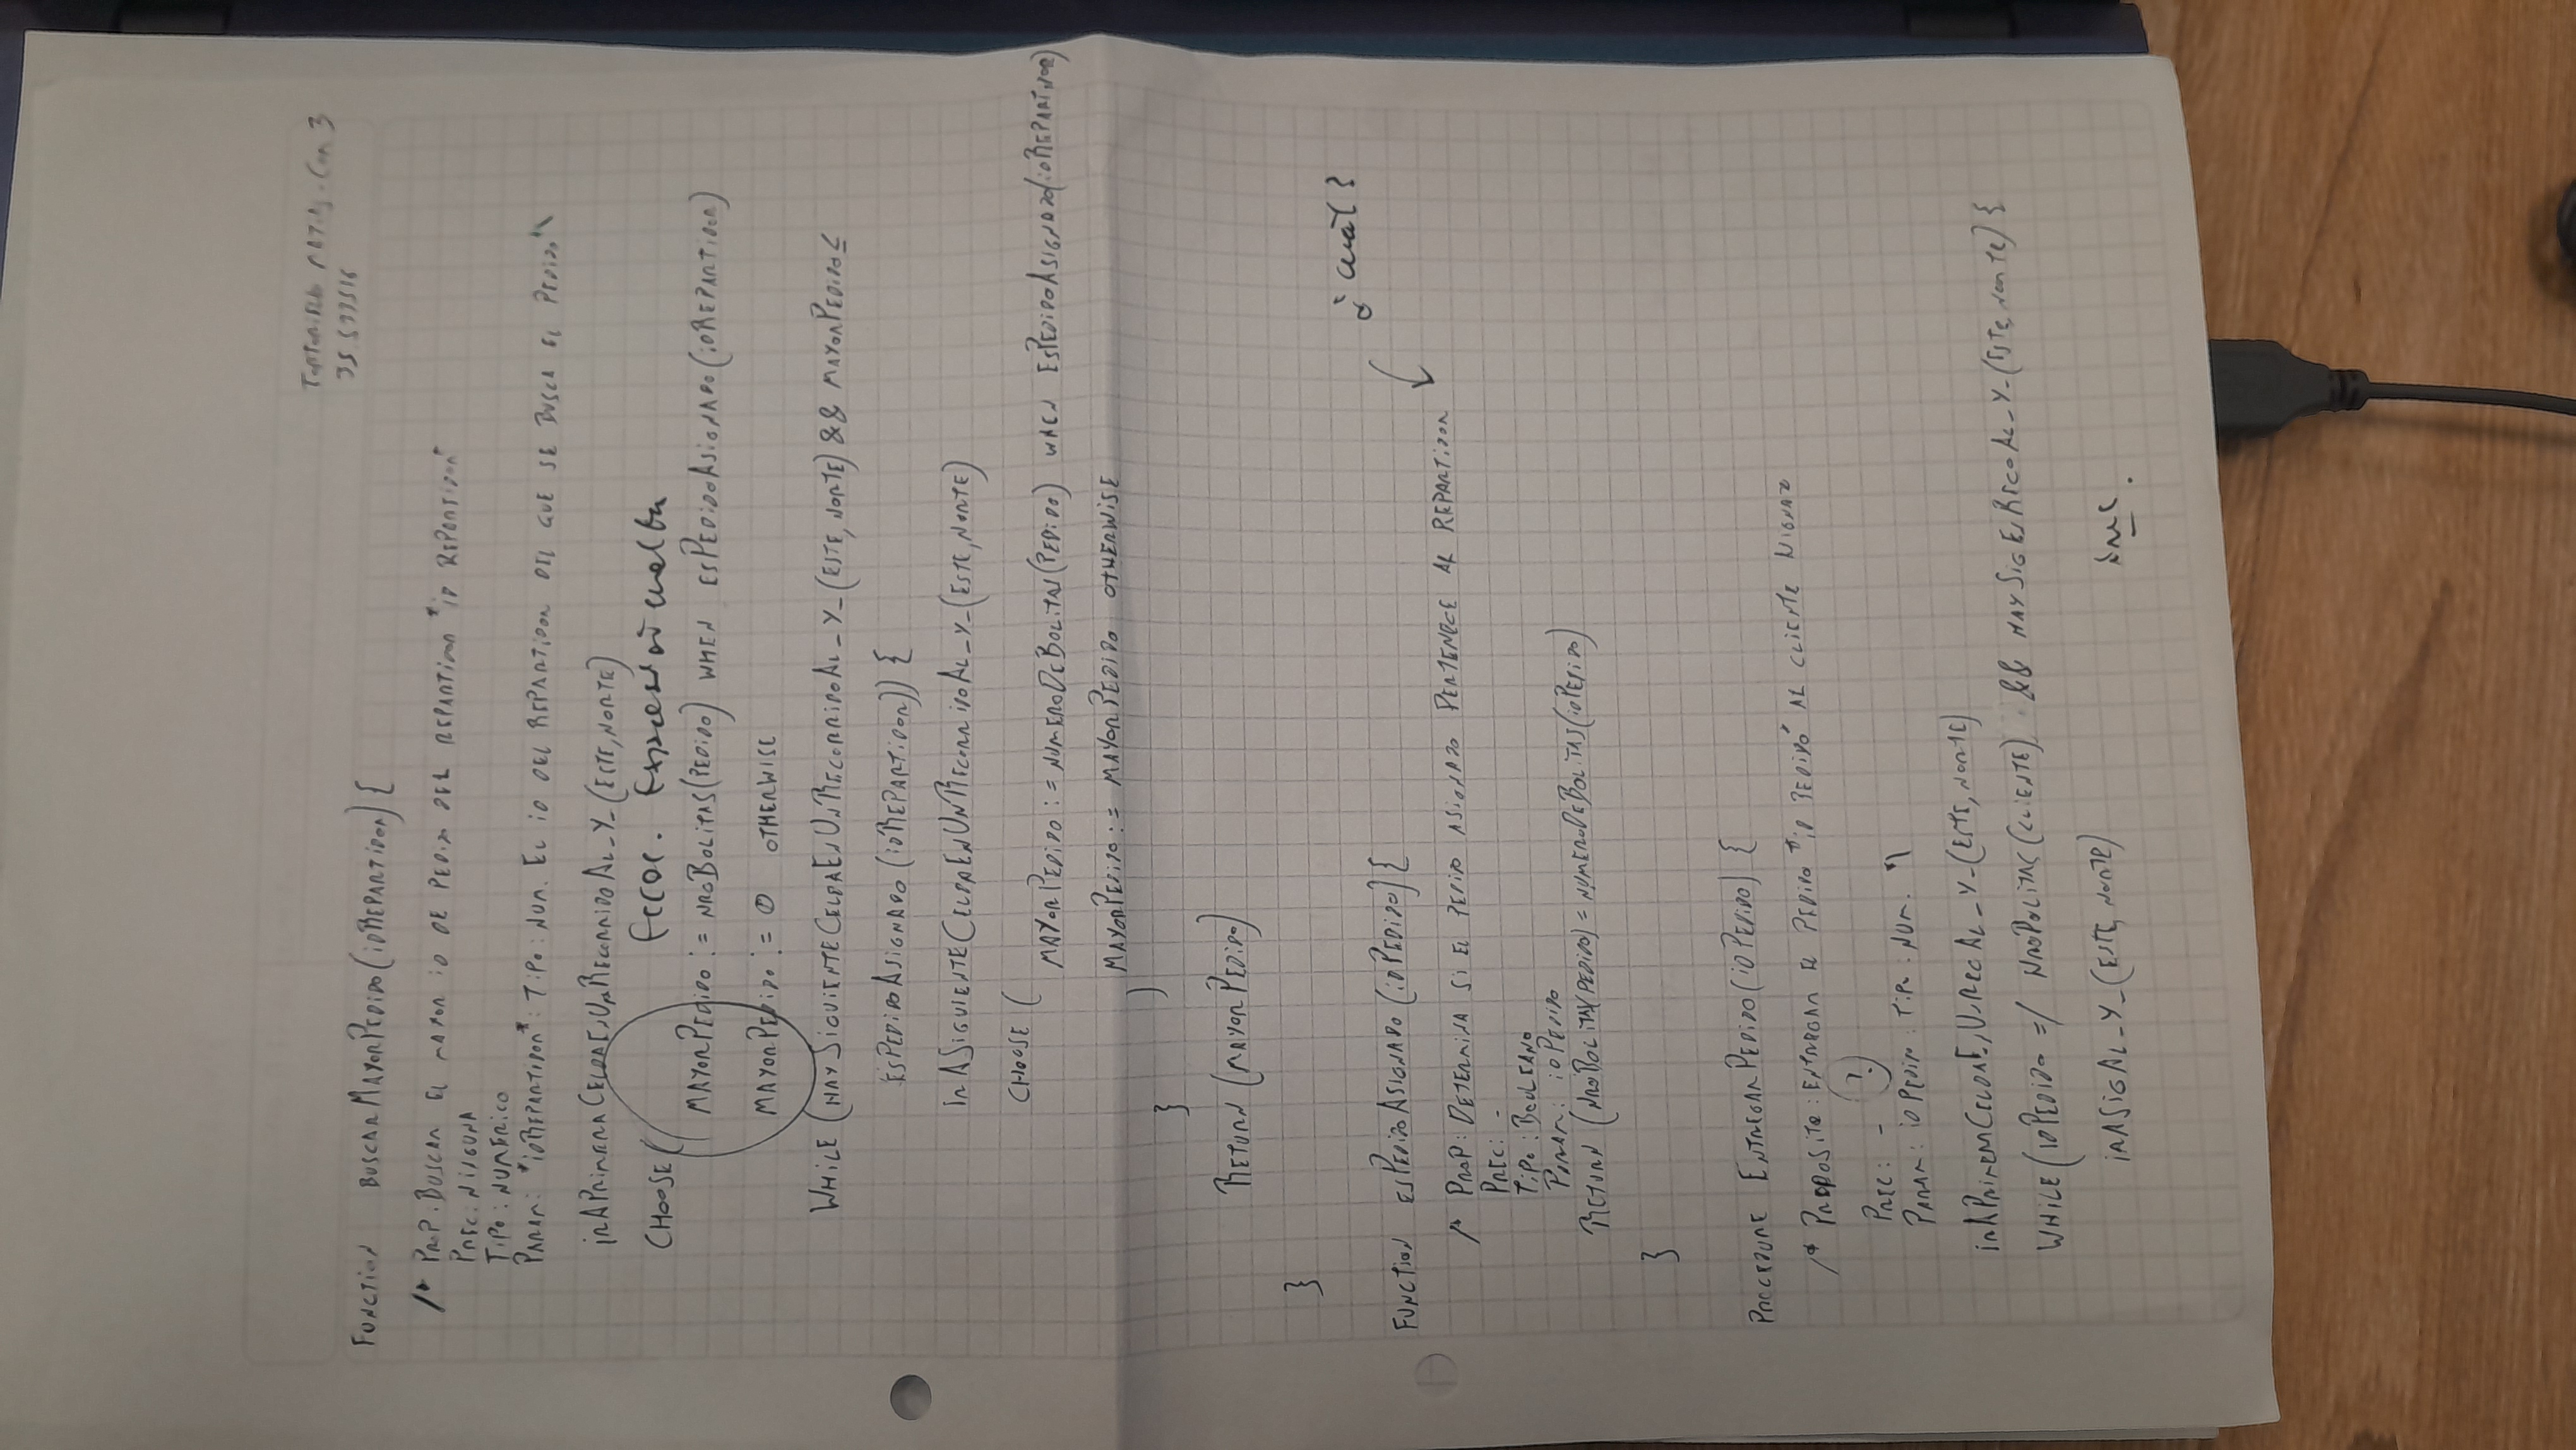 Com 3
FUNCTION BUSCARMAYORPEDIDO(IDREPARTIDOR){
/* PROP: BUSCAR EL MAYOR ID DE PEDIDO DEL REPARTIDOR "ID REPARTIDOR"
PREC: NINGUNA
TIPO: NUMERICO
PARAM: "IDREPARTIDOR": TIPO: NUM. EL ID DEL REPARTIDOR DEL QUE SE BUSCA EL PEDIDO*\
IRAPRIMERACELDAENUNRECORRIDOAL_Y_(ESTE,NORTE)
CHOOSE( Error. Expresión suelta
MAYORPEDIDO := NROBOLITAS(PEDIDO) WHEN ESPEDIDOASIGNADO(IDREPARTIDOR)
MAYORPEDIDO := 0 OTHERWISE
WHILE (HAYSIGUIENTECELDAENUNRECORRIDOAL_Y_(ESTE,NORTE) && MAYORPEDIDO ≤
ESPEDIDOASIGNADO(IDREPARTIDOR)) {
IRASIGUIENTECELDAENUNRECORRIDOAL_Y_(ESTE,NORTE)
CHOOSE (
MAYORPEDIDO := NUMERODEBOLITAS(PEDIDO) WHEN ESPEDIDOASIGNADO(IDREPARTIDOR)
MAYORPEDIDO := MAYORPEDIDO OTHERWISE
)
}
RETURN (MAYORPEDIDO)
}
¿cuál?
FUNCTION ESPEDIDOASIGNADO(IDPEDIDO){
/* PROP: DETERMINA SI EL PEDIDO ASIGNADO PERTENECE AL REPARTIDOR
PREC: -
TIPO: BOOLEANO
PARAM: IDPEDIDO
RETURN (NROBOLITAS(PEDIDO) = NUMERODEBOLITAS(IDPEDIDO)
}
PROCEDURE ENTREGARPEDIDO(IDPEDIDO) {
/* PROPOSITO: ENTREGAR EL PEDIDO "ID PEDIDO" AL CLIENTE
PREC: - ?
PARAM: IDPEDIDO: TIPO: NUM. *\
IRAPRIMERACELDAENUNRECAL_Y_(ESTE,NORTE)
WHILE(IDPEDIDO =/ NROBOLITAS(CLIENTE) && HAYSIGENRECOAL_Y_(ESTE,NORTE) {
IRASIGAL_Y_(ESTE,NORTE)
inc.